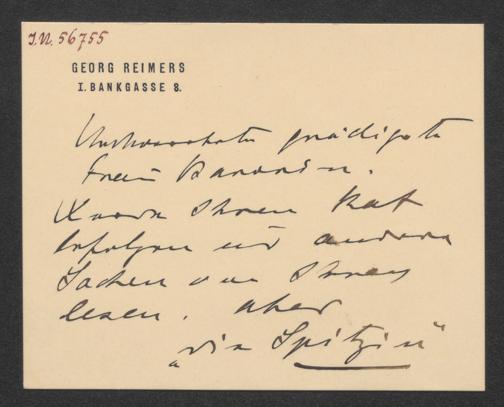 I.N. 56755
GEORG REIMERS
I. BANKGASSE 8.
gnädigste
Frau Baronin.
Ihren Rat
befolgen und andere
Sachen von Ihnen
lesen. aber
„die Spitzin“